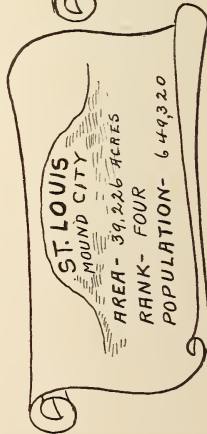 ST. LOUIS
MOUND CITY
AREA- 39,226 ACRES
RANK- FOUR
POPULATION- 649,320